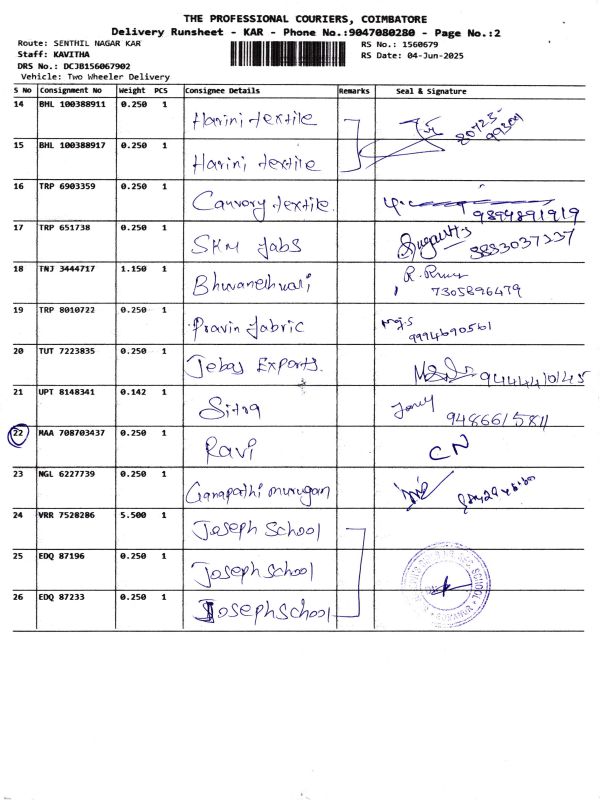 THE PROFESSIONAL COURIERS, COIMBATORE
Delivery Runsheet - KAR - Phone No.:9047080280 - Page No.:2
Route: SENTHIL NAGAR KAR
RS No.: 1560679
Staff: KAVITHA
RS Date: 04-Jun-2025
DRS No.: DCJB156067902
Vehicle: Two Wheeler Delivery
S No Consignment No Weight PCS Consignee Details Remarks Seal & Signature
14 BHL 100388911 0.250 1 Harini textile
15 BHL 100388917 0.250 1 Harini textile
16 TRP 6903359 0.250 1 Cauvery textile. 9894891919
17 TRP 651738 0.250 1 SKM fabs
18 TNJ 3444717 1.150 1 Bhuvaneshwari 7305896479
19 TRP 8010722 0.250 1 Pravin fabric 9994690561
20 TUT 7223835 0.250 1 Jebas Exports. 9444410145
21 UPT 8148341 0.142 1 Sitra 9486615811
22 MAA 708703437 0.250 1 Ravi CN
23 NGL 6227739 0.250 1 Ganapathi murugan
24 VRR 7528286 5.500 1 Joseph School
25 EDQ 87196 0.250 1 Joseph School
26 EDQ 87233 0.250 1 Joseph School